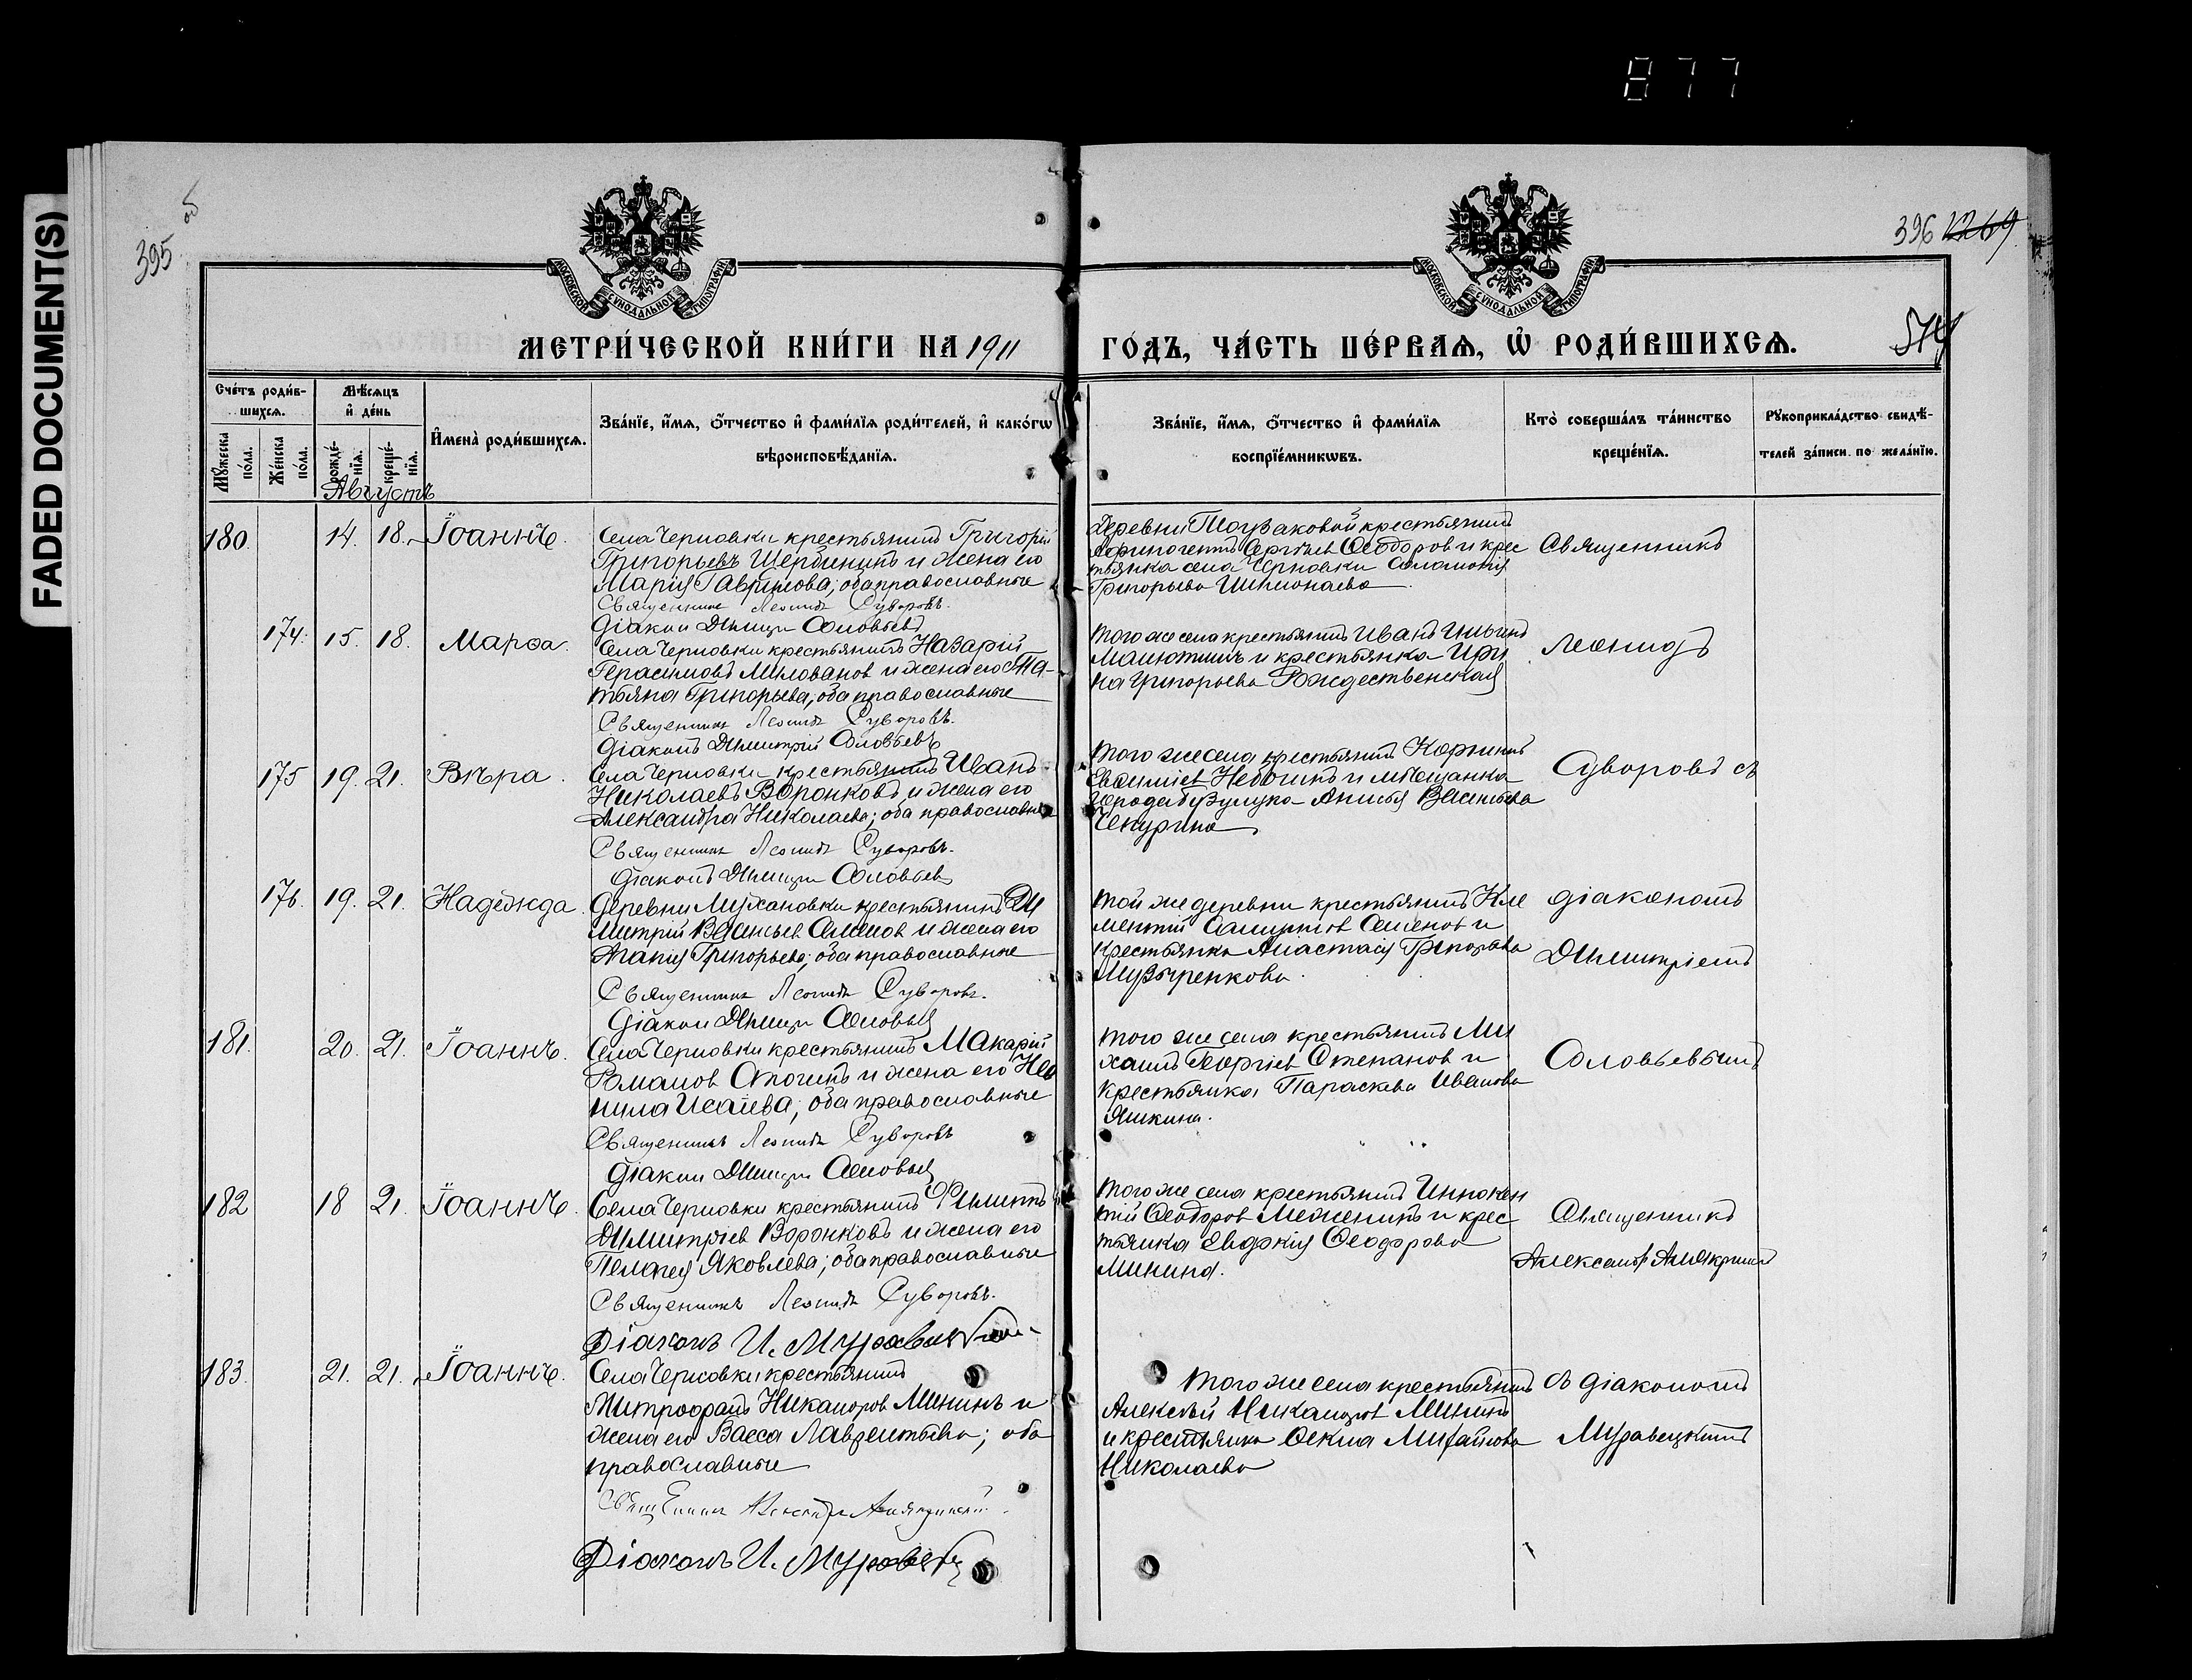 877
FADED DOCUMENT(S)
395 об
396 1269
574
МОСКОВСКОЙ СѴНОДАЛЬНОЙ ТИПОГРАФІИ
МОСКОВСКОЙ СѴНОДАЛЬНОЙ ТИПОГРАФІИ
МЕТРИ́ЧЕСКОЙ КНИ́ГИ НА 1911 ГО́ДЪ, ЧА́СТЬ ПЕ́РВАѦ, Ѡ҆ РОДИ́ВШИХСѦ.
Сче́тъ роди́в-
шихсѧ.
Мꙋ́жеска по́ла.
Же́нска по́ла.
Мѣ́сѧцъ
и҆ де́нь
рожде́-
нїѧ.
креще́-
нїѧ.
Августъ
И҆мена̀ роди́вшихсѧ.
Зва́нїе, и҆́мѧ, ѻ҆́тчество и҆ фами́лїѧ роди́телей, и҆ како́гѡ
вѣроисповѣ́данїѧ.
Зва́нїе, и҆́мѧ, ѻ҆́тчество и҆ фами́лїѧ
воспрїе́мникѡвъ.
Кто̀ соверша́лъ та́инство
креще́нїѧ.
Рꙋкоприкла́дство свидѣ́-
телей за́писи по жела́нїю.
180. 14. 18. Іоаннъ.
Села Черновки крестьянинъ Григорій
Григорьевъ Щербининъ и жена его
Марія Гаврилова; оба православные
Священникъ Леонидъ Суворовъ.
Діаконъ Димитрій Соловьевъ
Деревни крестьянинъ
Афиногенъ Сергѣевъ Ѳеодоровъ и крес
тьянка села Черновки Соломонія
Григорьева
Священникъ
174. 15. 18. Марѳа.
Села Черновки крестьянинъ Назарій
Герасимовъ Миловановъ и жена его Та-
тьяна Григорьева; оба православные
Священникъ Леонидъ Суворовъ.
Діаконъ Димитрій Соловьевъ
Того же села крестьянинъ Иванъ Ильинъ
Малюткинъ и крестьянка Ири
на Григорьева Рождественская
Леонидъ
175 19. 21. Вѣра.
Села Черновки крестьянинъ Иванъ
Николаевъ Воронковъ и жена его
Александра Николаева; оба православные
Священникъ Леонидъ Суворовъ.
Діаконъ Димитрій Соловьевъ
Того же села крестьянинъ
Евѳиміевъ и мѣщанка
города Бузулука Анисія Васильева
Чекурина
Суворовъ съ
176. 19. 21. Надежда.
Деревни крестьянинъ Ди
митрій Васильевъ Семеновъ и жена его
Агапія Григорьева; оба православные
Священникъ Леонидъ Суворовъ.
Діаконъ Димитрій Соловьевъ
той же деревни крестьянинъ Кли
ментій Семеновъ и
крестьянка Анастасія Григорьева
Музыренкова
діакономъ
Димитріемъ
181. 20. 21. Іоаннъ.
Села Черновки крестьянинъ Макарій
Романовъ и жена его Нео
нила Исаева; оба православные
Священникъ Леонидъ Суворовъ
Діаконъ Димитрій Соловьевъ
того же села крестьянинъ Ми
хаилъ Георгіевъ Степановъ и
крестьянка Параскева Иванова
Яшкина.
Соловьевымъ
182 18 21. Іоаннъ.
Села Черновки крестьянинъ Филиппъ
Димитріевъ Воронковъ и жена его
Пелагея Яковлева; оба православные
Священникъ Леонидъ Суворовъ.
Діаконъ И. Муравецкій
Того же села крестьянинъ Иннокен
тій Ѳеодоровъ Меженинъ и крес
тьянка Евдокія Ѳеодорова
Минина.
Священникъ
Александръ
183. 21. 21. Іоаннъ.
Села Черновки крестьянинъ
Митрофанъ Никаноровъ Мининъ и
жена его Васса Лаврентьева; оба
православные
Священникъ Александръ
Діаконъ И. Муравецкій
Того же села крестьянинъ
Алексѣй Никаноровъ Мининъ
и крестьянка Ѳекла Михайлова
Николаева
съ діакономъ
Муравецкимъ